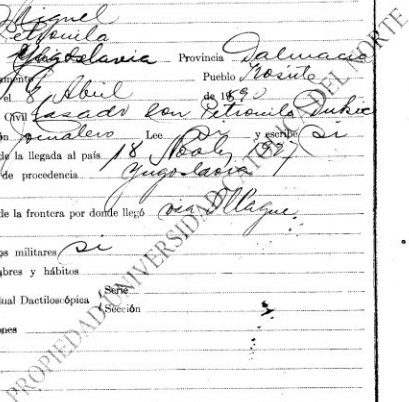 Miguel
Petronila
Yugoslavia Provincia Dalmacia
amento Pueblo
el 8 Abril de 1890
Civil Casado con Petronila
ón Jornalero Lee si y escribe si
de la llegada al país 18 1927
de procedencia Yugoslavia
de la frontera por donde llegó via Ollague
os militares si
bres y hábitos
ual Dactiloscópica Serie
Sección
ones
PROPIEDAD UNIVERSIDAD CATOLICA DEL NORTE